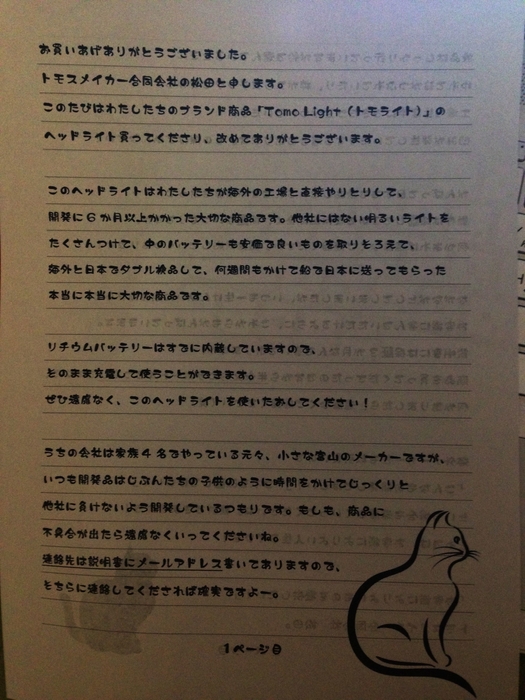 お買いあげありがとうございました。
トモスメイカー合同会社の松田と申します。
このたびはわたしたちのブランド商品「Tomo Light（トモライト）」の
ヘッドライト買ってくださり、改めてありがとうございます。
このヘッドライトはわたしたちが海外の工場と直接やりとりして、
開発に6か月以上かかった大切な商品です。他社にはない明るいライトを
たくさんつけて、中のバッテリーも安価で良いものを取りそろえて、
海外と日本でダブル検品して、何週間もかけて船で日本に送ってもらった
本当に本当に大切な商品です。
リチウムバッテリーはすでに内蔵していますので、
そのまま充電して使うことができます。
ぜひ遠慮なく、このヘッドライトを使いたおしてください！
うちの会社は家族4名でやっている元々、小さな富山のメーカーですが、
いつも開発品はじぶんたちの子供のように時間をかけてじっくりと
他社に負けないよう開発しているつもりです。もしも、商品に
不具合が出たら遠慮なくいってくださいね。
連絡先は説明書にメールアドレス書いてありますので、
そちらに連絡してくだされば確実ですよー。
1ページ目